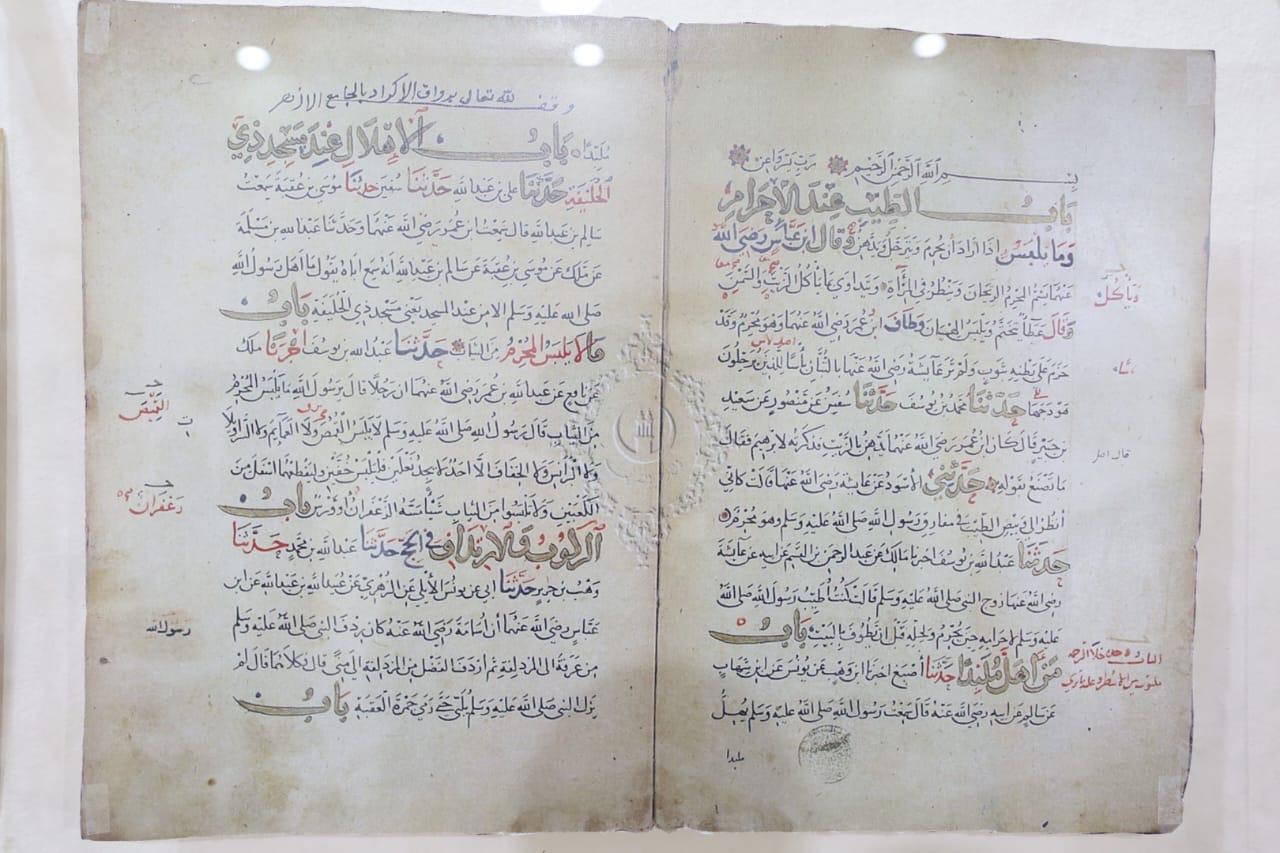 بسم الله الرحمن الرحيم رب يسر واعن
باب الطيب عند الاحرام
وما يلبس اذا اراد ان يحرم ويترجل ويدهن وقال ابن عباس رضي الله
عنهما يشم المحرم الريحان وينظر في المرآة ويتداوى بما ياكل الزيت والسمن
وقال عطاء يتختم ويلبس الهميان وطاف ابن عمر رضي الله عنهما وهو محرم وقد
حزم على بطنه بثوب ولم تر عايشة رضي الله عنها بالتبان بأسا للذين يرحلون
هودجها حدثنا محمد بن يوسف حدثنا سفين عن منصور عن سعيد
بن جبير قال كان ابن عمر رضي الله عنهما يدهن بالزيت فذكرته لابرهيم فقال
ما تصنع بقوله حدثني الأسود عن عايشة رضي الله عنها قالت كاني
أنظر إلى وبيص الطيب في مفارق رسول الله صلى الله عليه وسلم وهو محرم
حدثنا عبد الله بن يوسف اخبرنا مالك عن عبد الرحمن بن القسم عن ابيه عن عايشة
رضي الله عنها زوج النبي صلى الله عليه وسلم قالت كنت أطيب رسول الله صلى الله
عليه وسلم لإحرامه حين يحرم ولحله قبل ان يطوف بالبيت باب
من اهل ملبدا حدثنا أصبغ اخبرنا ابن وهب عن يونس عن ابن شهاب
عن سالم عن ابيه رضي الله عنه قال سمعت رسول الله صلى الله عليه وسلم يهل
ملبدا
وياكل
قال
وقف لله تعالى برواق الاكراد بالجامع الازهر
ملبدا باب الإهلال عند مسجد ذي
الحليفة حدثنا علي بن عبد الله حدثنا سفين حدثنا موسى بن عقبة سمعت
سالم بن عبد الله قال سمعت ابن عمر رضي الله عنهما وحدثنا عبد الله بن مسلمة
عن ملك عن موسى بن عقبة عن سالم بن عبد الله أنه سمع اباه يقول ما اهل رسول الله
صلى الله عليه وسلم الا من عند المسجد يعني مسجد ذي الحليفة باب
ما لا يلبس المحرم من الثياب حدثنا عبد الله بن يوسف اخبرنا ملك
عن نافع عن عبد الله بن عمر رضي الله عنهما ان رجلا قال يرسول الله ما يلبس المحرم
من الثياب قال رسول الله صلى الله عليه وسلم لا يلبس القمص ولا العمايم ولا السراويلا
ولا البرانس ولا الخفاف الا احد لا يجد نعلين فليلبس خفين وليقطعهما اسفل من
الكعبين ولا تلبسوا من الثياب شيأ مسه الزعفران او ورس باب
الركوب والارتداف في الحج حدثنا عبد الله بن محمد حدثنا
وهب بن جرير حدثنا ابي عن يونس الأيلي عن الزهري عن عبيد الله بن عبد الله عن ابن
عباس رضي الله عنهما أن أسامة رضي الله عنه كان ردف النبي صلى الله عليه وسلم
من عرفة الى المزدلفة ثم أردف الفضل من المزدلفة إلى منى قال فكلاهما قال لم
يزل النبي صلى الله عليه وسلم يلبي حتى رمى جمرة العقبة باب
القميص
زعفران
رسول الله